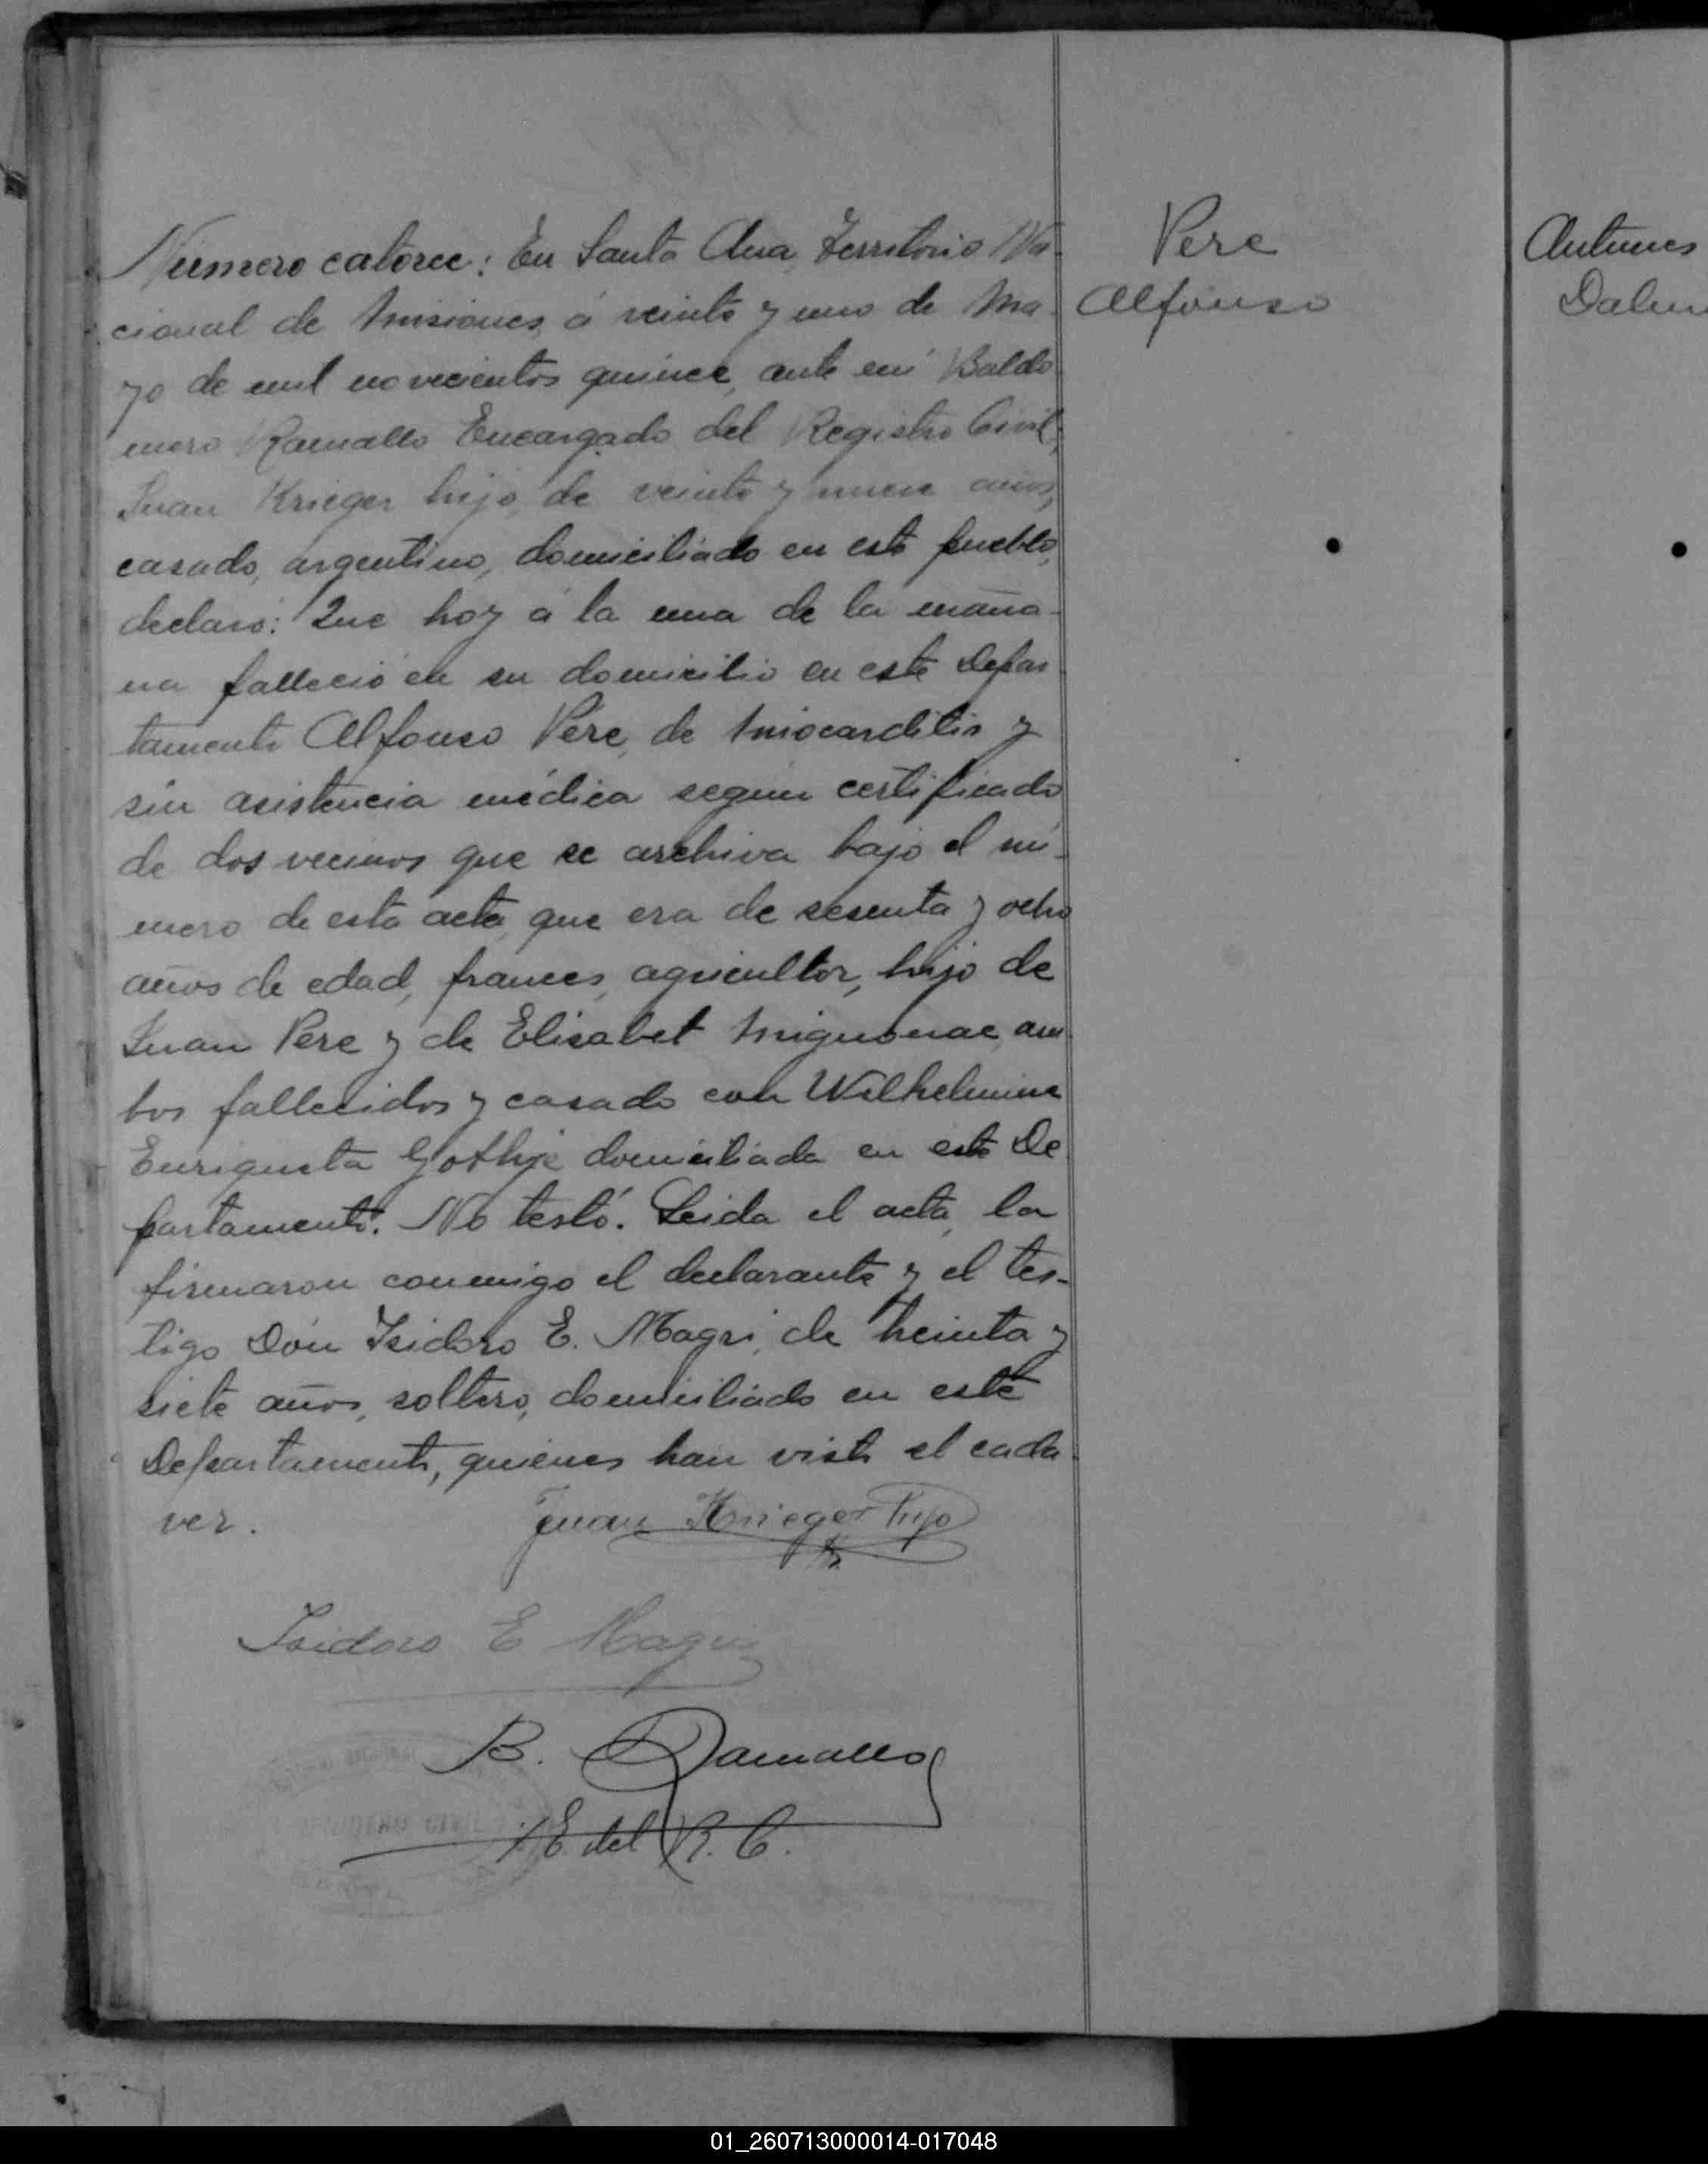 Número catorce: En Santa Ana, Territorio Na-
cional de Misiones, á veinte y uno de Ma-
yo de mil novecientos quince, ante mí Baldo
mero Ramallo Encargado del Registro Civil,
Juan Krieger hijo, de veinte y nueve años,
casado, argentino, domiciliado en este pueblo,
declaró: Que hoy á la una de la maña-
na falleció en su domicilio en este Depar-
tamento Alfonso Pére, de Miocarditis y
sin asistencia médica según certificado
de dos vecinos que se archiva bajo el nú-
mero de esta acta, que era de sesenta y ocho
años de edad, frances, agricultor, hijo de
Juan Pere y de Elisabet Mignonac, am-
bos fallecidos y casado con Wilhelmina
Enriqueta Gothje domiciliada en este De
partamento. No testó. Leida el acta, la
firmaron conmigo el declarante y el tes-
tigo Don Isidoro E. Magri, de treinta y
siete años, soltero, domiciliado en este
Departamento, quienes han visto el cada-
ver.
Juan Krieger hijo
Isidoro E Magri
B. Ramallo
E del R. C.
REGISTRO CIVIL
Pere
Alfonso
Antunes
01_260713000014-017048